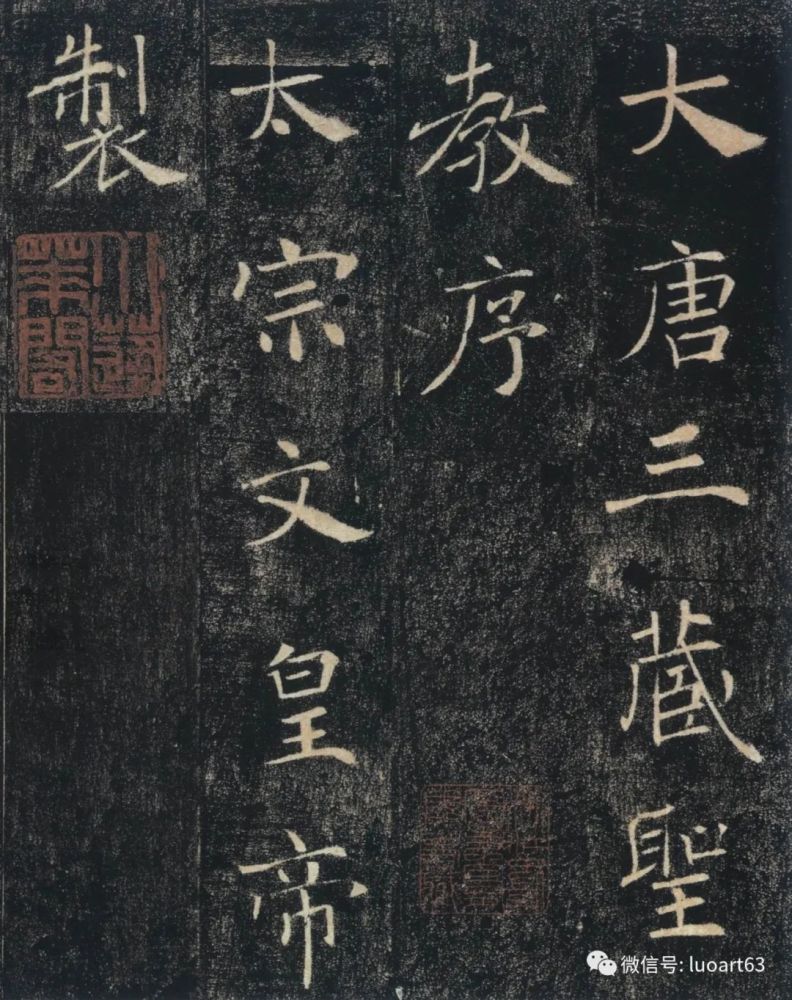 大唐三藏聖
教序
太宗文皇帝
製
微信号: luoart63